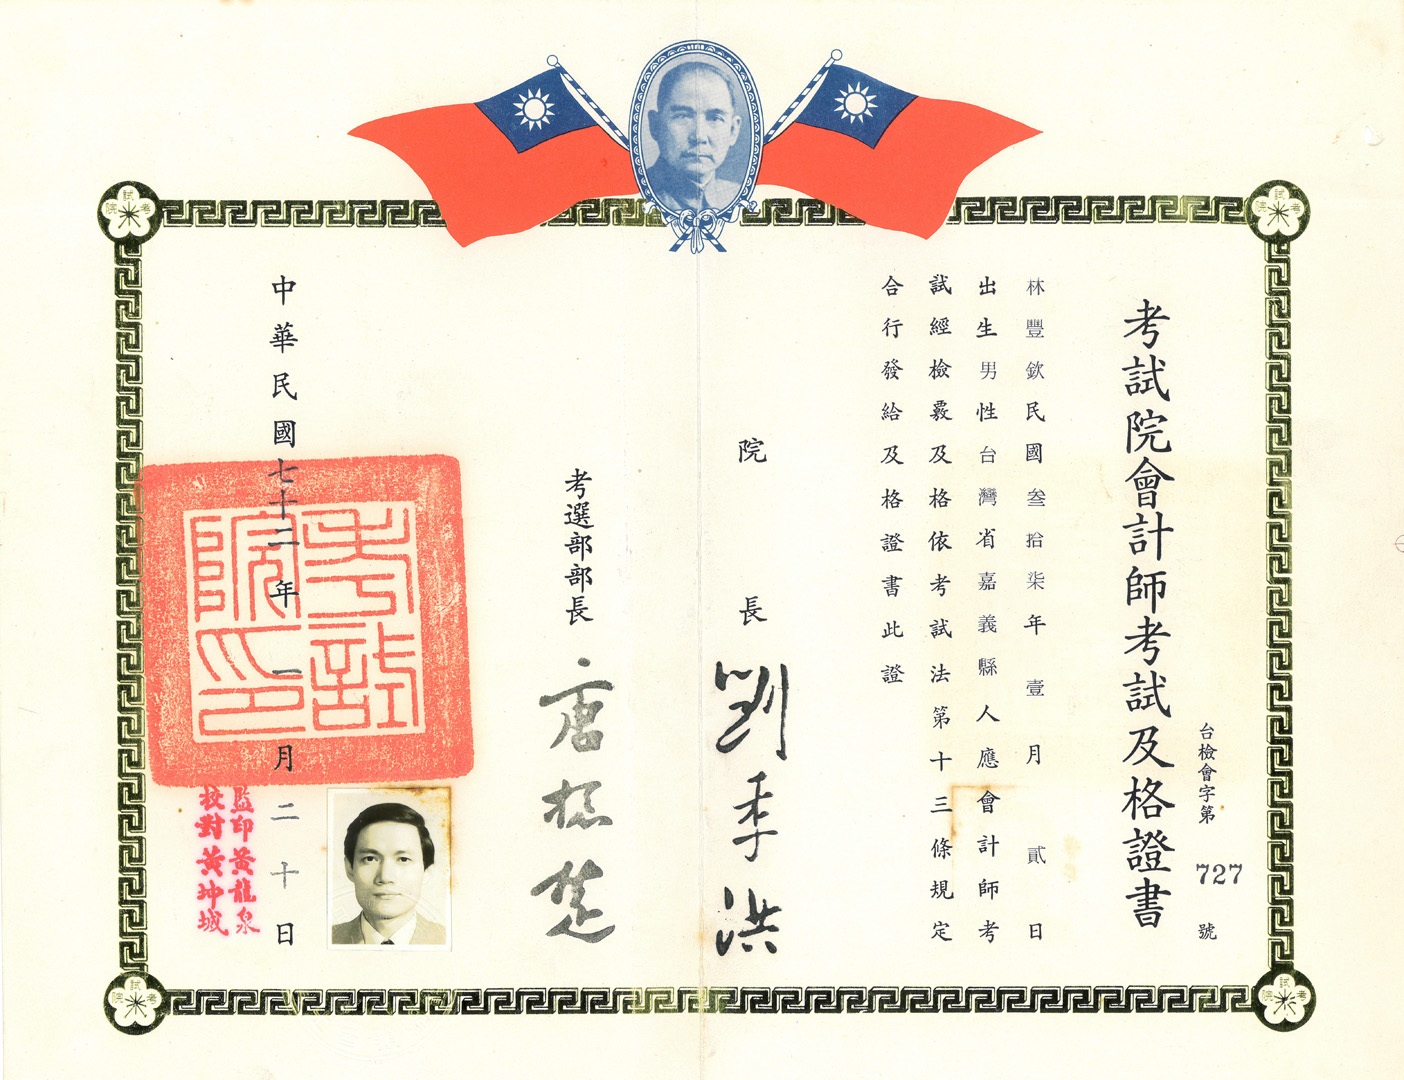 考試院會計師考試及格證書
台檢會字第 727 號
林豐欽民國叁拾柒年壹月貳日
出生男性台灣省嘉義縣人應會計師考
試經檢覈及格依考試法第十三條規定
合行發給及格證書此證
院長 劉季洪
考選部部長 唐振楚
中華民國七十二年一月二十日
考試院印
監印黃龍泉
校對黃坤城
考試院
考試院
考試院
考試院